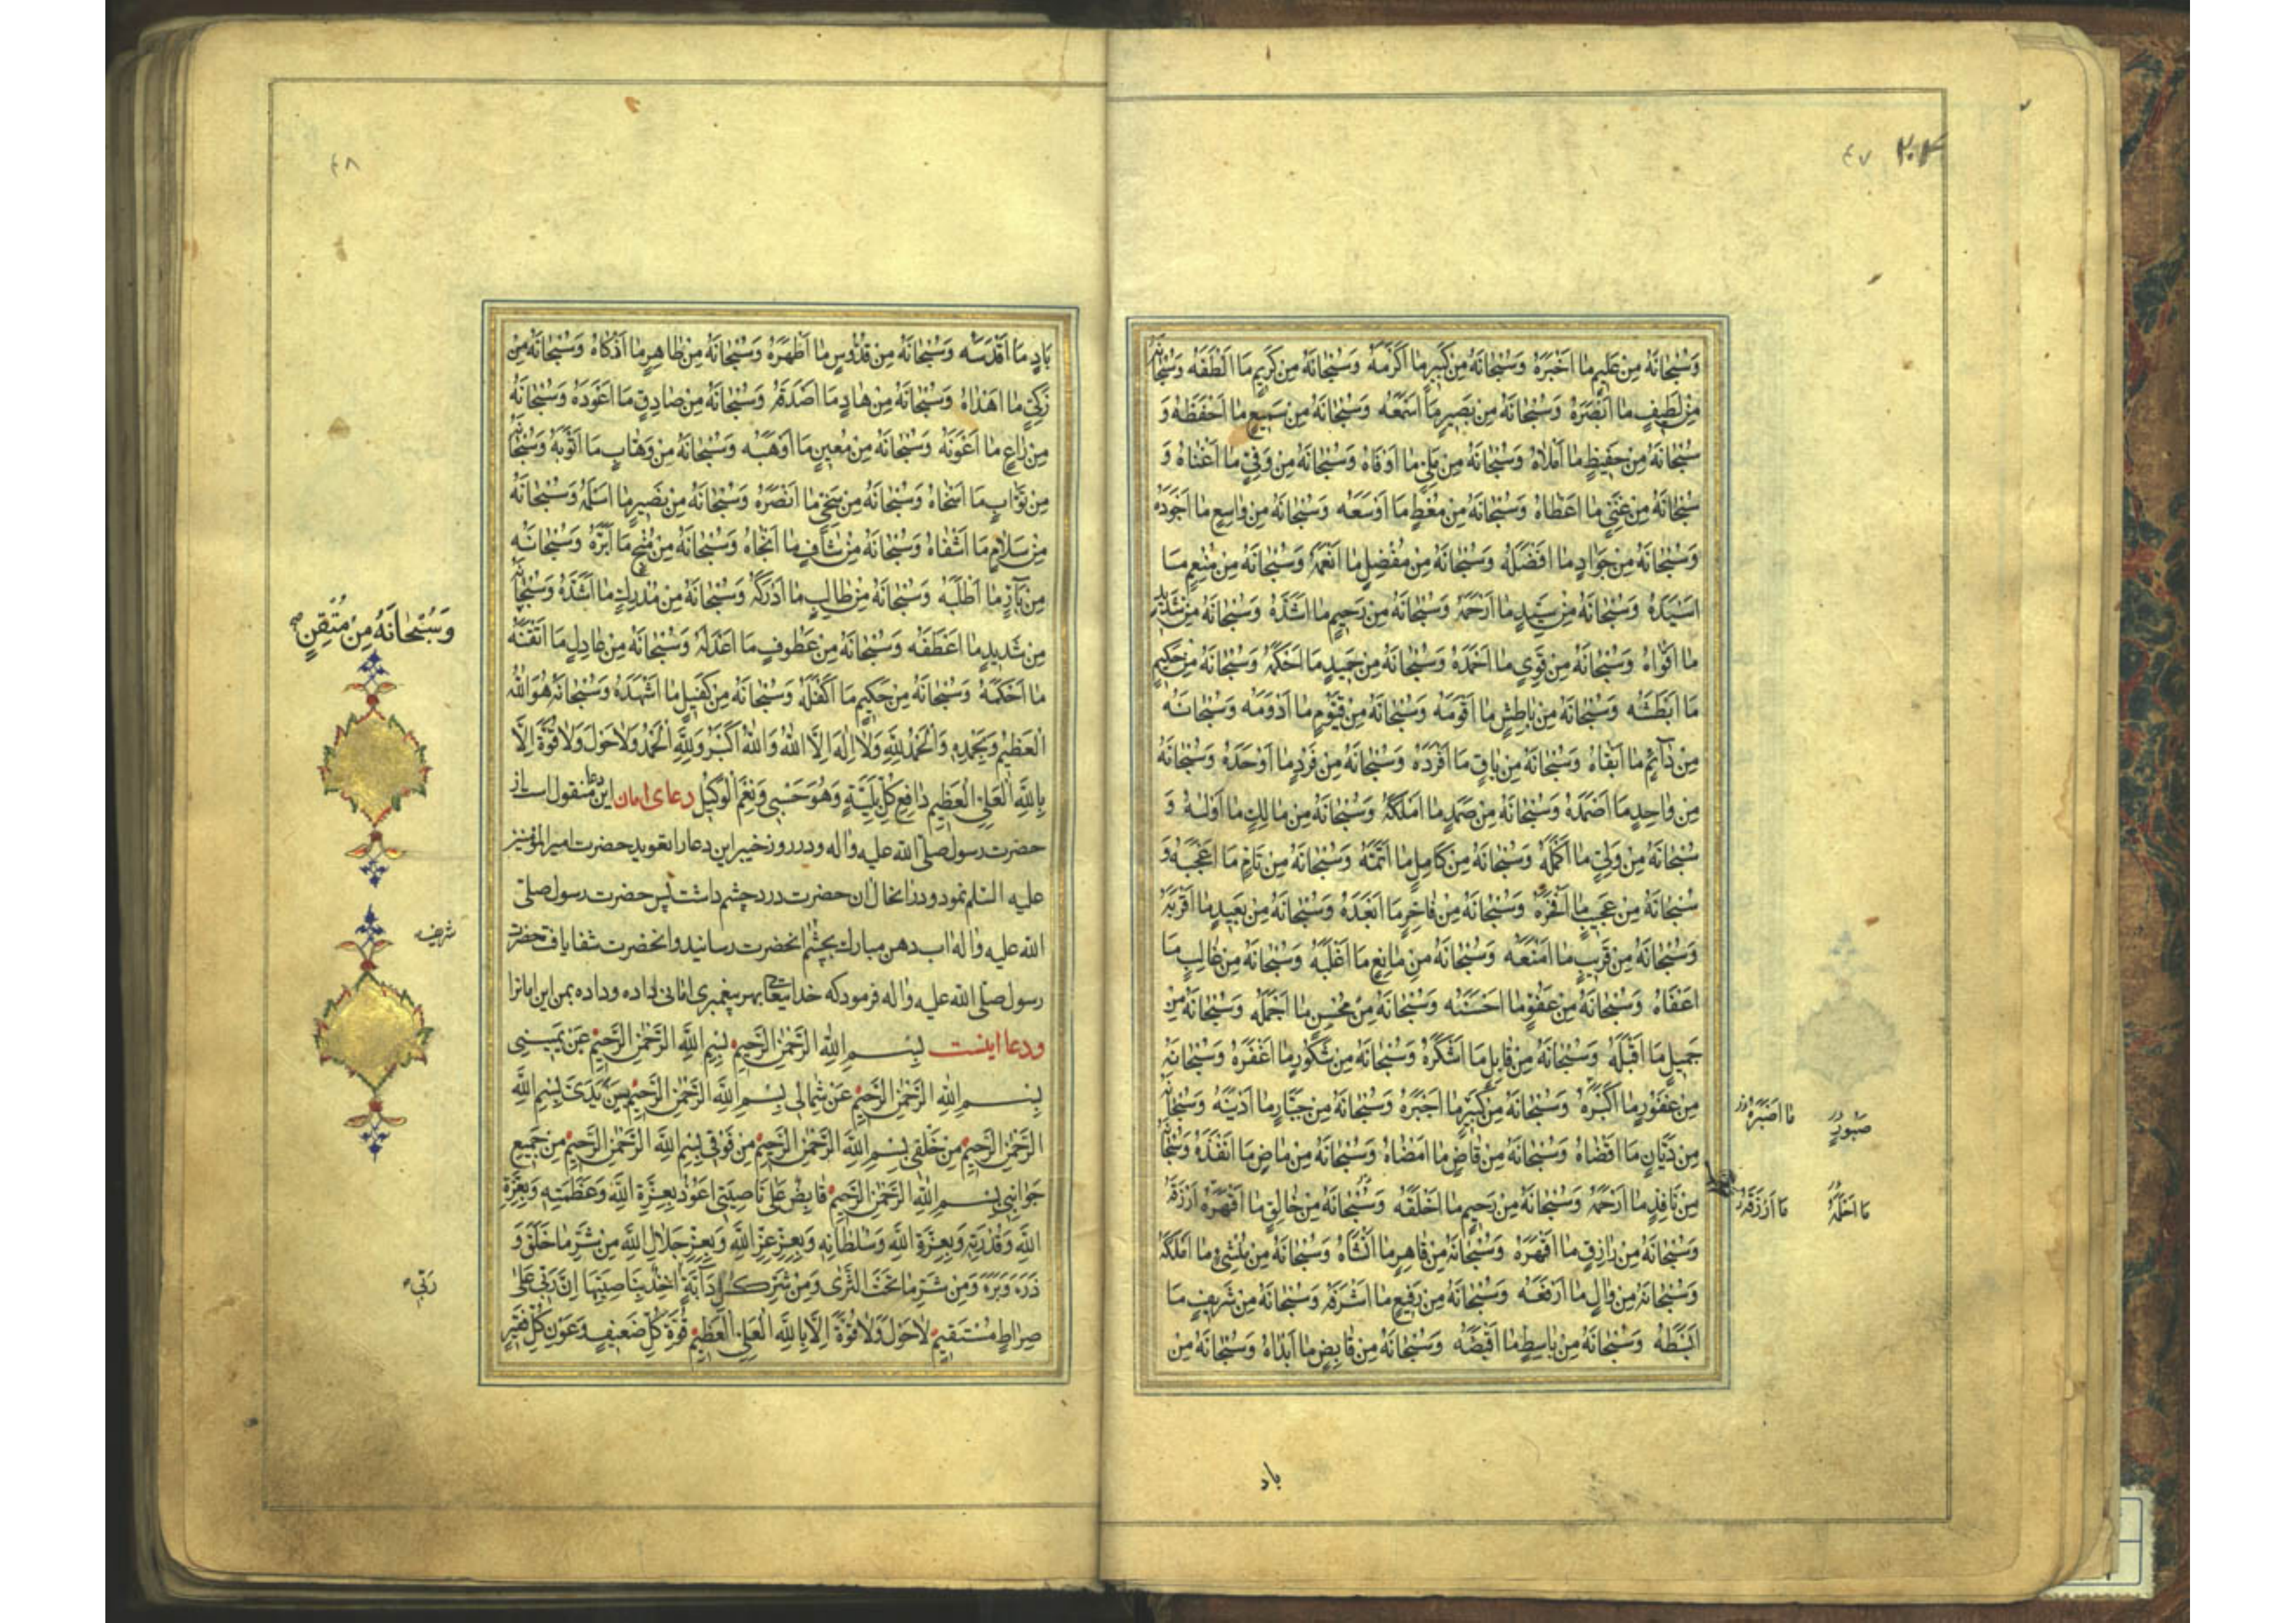 ٢٠٤ ٤٧
وَسُبْحانَهُ مِنْ عَلِيمٍ ما اَخْبَرَهُ وَسُبْحانَهُ مِنْ خَبيرٍ ما اَكْرَمَهُ وَسُبْحانَهُ مِنْ كَرِيمٍ مَا اَلْطَفَهُ وَسُبْحانَهُ
مِنْ لَطيفٍ ما اَبْصَرَهُ وَسُبْحانَهُ مِنْ بَصيرٍ ما اَسْمَعَهُ وَسُبْحانَهُ مِنْ سَميعٍ ما اَحْفَظَهُ وَ
سُبْحانَهُ مِنْ حَفيظٍ ما اَمْلاهُ وَسُبْحانَهُ مِنْ مَلِيٍّ ما اَوْفاهُ وَسُبْحانَهُ مِنْ وَفِيٍّ ما اَغْناهُ وَ
سُبْحانَهُ مِنْ غَنِيٍّ ما اَعْطاهُ وَسُبْحانَهُ مِنْ مُعْطٍ مَا اَوْسَعَهُ وَسُبْحانَهُ مِنْ واسِعٍ ما اَجْوَدَهُ
وَسُبْحانَهُ مِنْ جَوادٍ ما اَفْضَلَهُ وَسُبْحانَهُ مِنْ مُفْضِلٍ ما اَنْعَمَهُ وَسُبْحانَهُ مِنْ مُنْعِمٍ مَا
اَسْيَدَهُ وَسُبْحانَهُ مِنْ سَيِّدٍ ما اَرْحَمَهُ وَسُبْحانَهُ مِنْ رَحيمٍ ما اَشَدَّهُ وَسُبْحانَهُ مِنْ شَديدٍ
ما اَقْواهُ وَسُبْحانَهُ مِنْ قَوِيٍّ ما اَحْمَدَهُ وَسُبْحانَهُ مِنْ حَميدٍ مَا اَحْكَمَهُ وَسُبْحانَهُ مِنْ حَكيمٍ
ما اَبْطَشَهُ وَسُبْحانَهُ مِنْ باطِشٍ ما اَقْوَمَهُ وَسُبْحانَهُ مِنْ قَيُّومٍ ما اَدْوَمَهُ وَسُبْحانَهُ
مِنْ دآئِمٍ ما اَبْقاهُ وَسُبْحانَهُ مِنْ باقٍ مَا اَفْرَدَهُ وَسُبْحانَهُ مِنْ فَرْدٍ ما اَوْحَدَهُ وَسُبْحانَهُ
مِنْ واحِدٍ مَا اَصْمَدَهُ وَسُبْحانَهُ مِنْ صَمَدٍ ما اَمْلَكَهُ وَسُبْحانَهُ مِنْ مالِكٍ ما اَوْلاهُ وَ
سُبْحانَهُ مِنْ وَلِيٍّ ما اَكْمَلَهُ وَسُبْحانَهُ مِنْ كامِلٍ ما اَتَمَّهُ وَسُبْحانَهُ مِنْ تامٍّ مَا اَعْجَبَهُ وَ
سُبْحانَهُ مِنْ عَجيبٍ ما اَفْخَرَهُ وَسُبْحانَهُ مِنْ فاخِرٍ ما اَبْعَدَهُ وَسُبْحانَهُ مِنْ بَعيدٍ ما اَقْرَبَهُ
وَسُبْحانَهُ مِنْ قَريبٍ ما اَمْنَعَهُ وَسُبْحانَهُ مِنْ مانِعٍ ما اَغْلَبَهُ وَسُبْحانَهُ مِنْ غالِبٍ مَا
اَعْفاهُ وَسُبْحانَهُ مِنْ عَفُوٍّ ما اَحْسَنَهُ وَسُبْحانَهُ مِنْ مُحْسِنٍ ما اَجْمَلَهُ وَسُبْحانَهُ مِنْ
جَميلٍ ما اَقْبَلَهُ وَسُبْحانَهُ مِنْ قابِلٍ مَا اَشْكَرَهُ وَسُبْحانَهُ مِنْ شَكُورٍ ما اَغْفَرَهُ وَسُبْحانَهُ
مِنْ غَفُورٍ ما اَكْبَرَهُ وَسُبْحانَهُ مِنْ كَبيرٍ ما اَجْبَرَهُ وَسُبْحانَهُ مِنْ جَبّارٍ ما اَدْيَنَهُ وَسُبْحانَهُ
مِنْ دَيّانٍ ما اَقْضاهُ وَسُبْحانَهُ مِنْ قاضٍ ما اَمْضاهُ وَسُبْحانَهُ مِنْ ماضٍ ما اَنْفَذَهُ وَسُبْحانَهُ
مِنْ نافِذٍ ما اَرْحَمَهُ وَسُبْحانَهُ مِنْ رَحيمٍ ما اَخْلَقَهُ وَسُبْحانَهُ مِنْ خالِقٍ ما اَقْهَرَهُ اَرْزَقَهُ
وَسُبْحانَهُ مِنْ رازِقٍ ما اَقْهَرَهُ وَسُبْحانَهُ مِنْ قاهِرٍ ما اَنْشَاهُ وَسُبْحانَهُ مِنْ مُنْشِئٍ ما اَمْلَكَهُ
وَسُبْحانَهُ مِنْ والٍ ما اَرْفَعَهُ وَسُبْحانَهُ مِنْ رَفيعٍ ما اَشْرَفَهُ وَسُبْحانَهُ مِنْ شَريفٍ مَا
اَبْسَطَهُ وَسُبْحانَهُ مِنْ باسِطٍ ما اَقْبَضَهُ وَسُبْحانَهُ مِنْ قابِضٍ ما اَبْداهُ وَسُبْحانَهُ مِنْ
ما اَصْبَرَهُ
صَبُورٍ
ما اَرْزَقَهُ
باد
٤٨
بادٍ مَا اَقْدَسَهُ وَسُبْحانَهُ مِنْ قُدُّوسٍ ما اَطْهَرَهُ وَسُبْحانَهُ مِنْ طاهِرٍ ما اَزْكاهُ وَسُبْحانَهُ مِنْ
زَكِيٍّ ما اَهْداهُ وَسُبْحانَهُ مِنْ هادٍ مَا اَصْدَقَهُ وَسُبْحانَهُ مِنْ صادِقٍ مَا اَعْوَدَهُ وَسُبْحانَهُ
مِنْ راعٍ ما اَعْوَنَهُ وَسُبْحانَهُ مِنْ مُعينٍ ما اَوْهَبَهُ وَسُبْحانَهُ مِنْ وَهّابٍ مَا اَتْوَبَهُ وَسُبْحانَهُ
مِنْ تَوّابٍ مَا اَسْخاهُ وَسُبْحانَهُ مِنْ سَخِيٍّ ما اَنْصَرَهُ وَسُبْحانَهُ مِنْ نَصيرٍ ما اَسْلَمَهُ وَسُبْحانَهُ
مِنْ سَلامٍ مَا اَشْفاهُ وَسُبْحانَهُ مِنْ شافٍ ما اَنْجاهُ وَسُبْحانَهُ مِنْ مُنْجٍ مَا اَبَرَّهُ وَسُبْحانَهُ
مِنْ بآرٍّ ما اَطْلَبَهُ وَسُبْحانَهُ مِنْ طالِبٍ ما اَدْرَكَهُ وَسُبْحانَهُ مِنْ مُدْرِكٍ ما اَشَدَّهُ وَسُبْحانَهُ
مِنْ شَديدٍ ما اَعْطَفَهُ وَسُبْحانَهُ مِنْ عَطُوفٍ مَا اَعْدَلَهُ وَسُبْحانَهُ مِنْ عادِلٍ مَا اَتْقَنَهُ
ما اَحْكَمَهُ وَسُبْحانَهُ مِنْ حَكيمٍ مَا اَكْفَلَهُ وَسُبْحانَهُ مِنْ كَفيلٍ ما اَشْهَدَهُ وَسُبْحانَهُ هُوَ اللّٰهُ
الْعَظيمُ وَبِحَمْدِهِ وَالْحَمْدُ لِلّٰهِ وَلا اِلٰهَ اِلَّا اللّٰهُ وَاللّٰهُ اَكْبَرُ وَلِلّٰهِ الْحَمْدُ وَلا حَوْلَ وَلا قُوَّةَ اِلّا
بِاللّٰهِ الْعَلِيِّ الْعَظيمِ دافِعِ كُلِّ بَلِيَّةٍ وَهُوَ حَسْبي وَنِعْمَ الْوَكيلُ دعاى امان اين دعا منقول است از
حضرت رسول صلّى الله عليه واله ودر روز خيبر اين دعا را تعويد حضرت امير المؤمنين
عليه السّلم نمود ودر انحال ان حضرت درد چشم داشت پس حضرت رسول صلّى
الله عليه واله اب دهن مبارك بچشم انحضرت رسانيد وانحضرت شفا يافت حضرت
رسول صلّى الله عليه واله فرمود كه خدايتعالى بهر پيغمبرى امانى داده وداده بمن اين امانرا
ودعا اينست بِسْمِ اللّٰهِ الرَّحْمٰنِ الرَّحيمِ بِسْمِ اللّٰهِ الرَّحْمٰنِ الرَّحيمِ عَنْ يَميني
بِسْمِ اللّٰهِ الرَّحْمٰنِ الرَّحيمِ عَنْ شِمالي بِسْمِ اللّٰهِ الرَّحْمٰنِ الرَّحيمِ بَيْنَ يَدَيَّ بِسْمِ اللّٰهِ
الرَّحْمٰنِ الرَّحيمِ مِنْ خَلْفي بِسْمِ اللّٰهِ الرَّحْمٰنِ الرَّحيمِ مِنْ فَوْقي بِسْمِ اللّٰهِ الرَّحْمٰنِ الرَّحيمِ مِنْ جَميعِ
جَوانِبي بِسْمِ اللّٰهِ الرَّحْمٰنِ الرَّحيمِ قابِضٌ عَلىٰ ناصِيَتي اَعُوذُ بِعِزَّةِ اللّٰهِ وَعَظَمَتِهِ وَبِعِزَّةِ
اللّٰهِ وَقُدْرَتِهِ وَبِعِزَّةِ اللّٰهِ وَسُلْطانِهِ وَبِعِزِّ عِزِّ اللّٰهِ وَبِعِزِّ جَلالِ اللّٰهِ مِنْ شَرِّ ما خَلَقَ وَ
ذَرَءَ وَبَرَءَ وَمِنْ شَرِّ ما تَحْتَ الثَّرىٰ وَمِنْ شَرِّ كُلِّ دآبَّةٍ اٰخِذٌ بِناصِيَتِها اِنَّ رَبّي عَلىٰ
صِراطٍ مُسْتَقيمٍ لا حَوْلَ وَلا قُوَّةَ اِلّا بِاللّٰهِ الْعَلِيِّ الْعَظيمِ قُوَّةُ كُلِّ ضَعيفٍ وَعَوْنُ كُلِّ فَقيرٍ
وَسُبْحانَهُ مِنْ مُتْقِنٍ
شريف